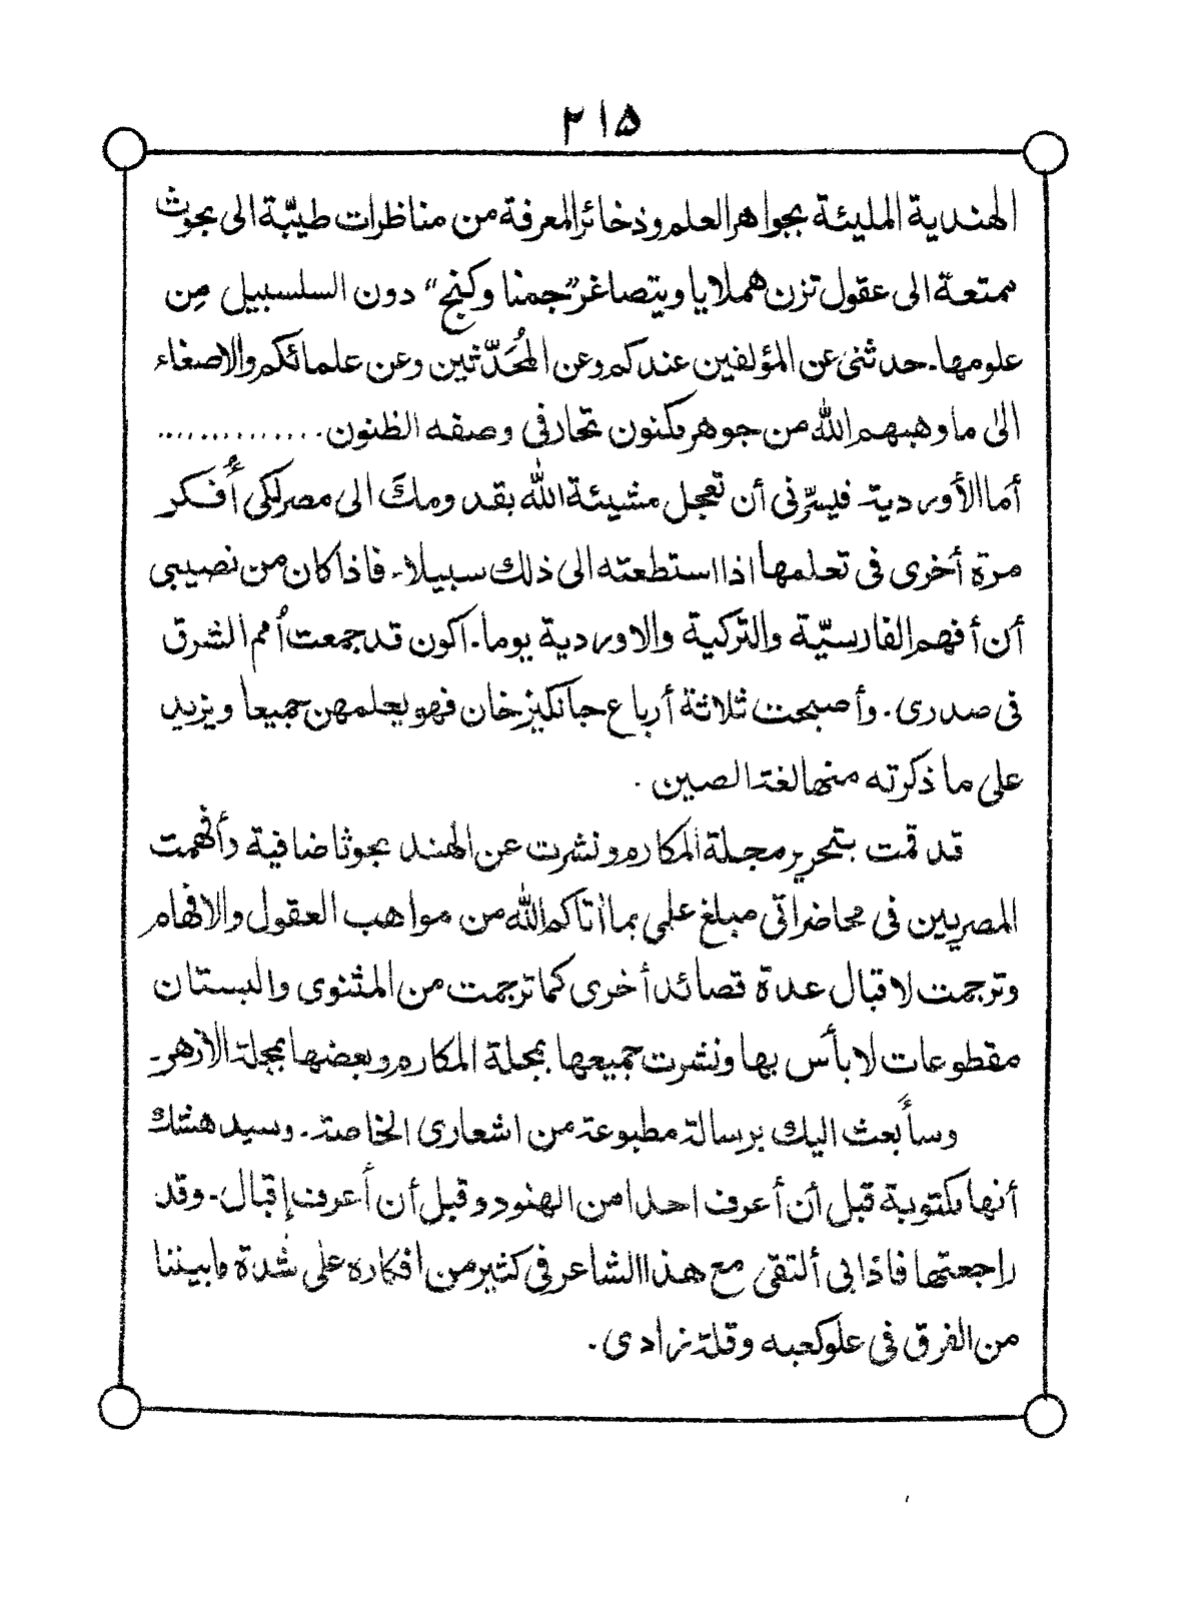 ۲۱۵
الهندية المليئة بجواهر العلم وذخائر المعرفة من مناظرات طيبّة الى بحوث
ممتعة الى عقول تزن هملايا ويتصاغر "جمنا وكنج" دون السلسبيل مِن
علومها۔ حدثنى عن المؤلفين عندكم وعن المُحَدّثين وعن علمائكم والاصغاء
الىٰ ما وهبهم الله من جوهر مكنون تحار فى وصفه الظنون ..............
أما الأوردية فيسرّنى أن تعجل مشيئة الله بقدومكَ الى مصر لكى أُفكر
مرة أخرى فى تعلمها اذا استطعته الى ذلك سبيلا۔ فاذا كان من نصيبى
أن أفهم الفارسيّة والتركية والاوردية يوما۔ اكون قد جمعت أُمم الشرق
فى صدرى. وأصبحت ثلاثة أرباع جانكيز خان فهو يعلمهن جميعا ويزيد
على ما ذكرته منها لغة الصين .
قد قمت بتحرير مجلة المكارم ونشرت عن الهند بحوثا ضافية وأفهمت
المصريين فى محاضراتى مبلغ علمى بما أتاكم الله من مواهب العقول والافهام
وترجمت لاقبال عدة قصائد أخرى كما ترجمت من المثنوى والبستان
مقطوعات لا بأس بها ونشرت جميعها بمجلة المكارم وبعضها بمجلة الازهر۔
وسأبعث اليك برسالة مطبوعة من اشعارى الخاصة۔ وسيدهشك
أنها مكتوبة قبل أن أعرف احدا من الهنود وقبل أن أعرف إقبال۔ وقد
راجعتها فاذا بى ألتقى مع هذا الشاعر فى كثير من افكاره على شدة ما بيننا
من الفرق فى علو كعبه وقلة زادى .